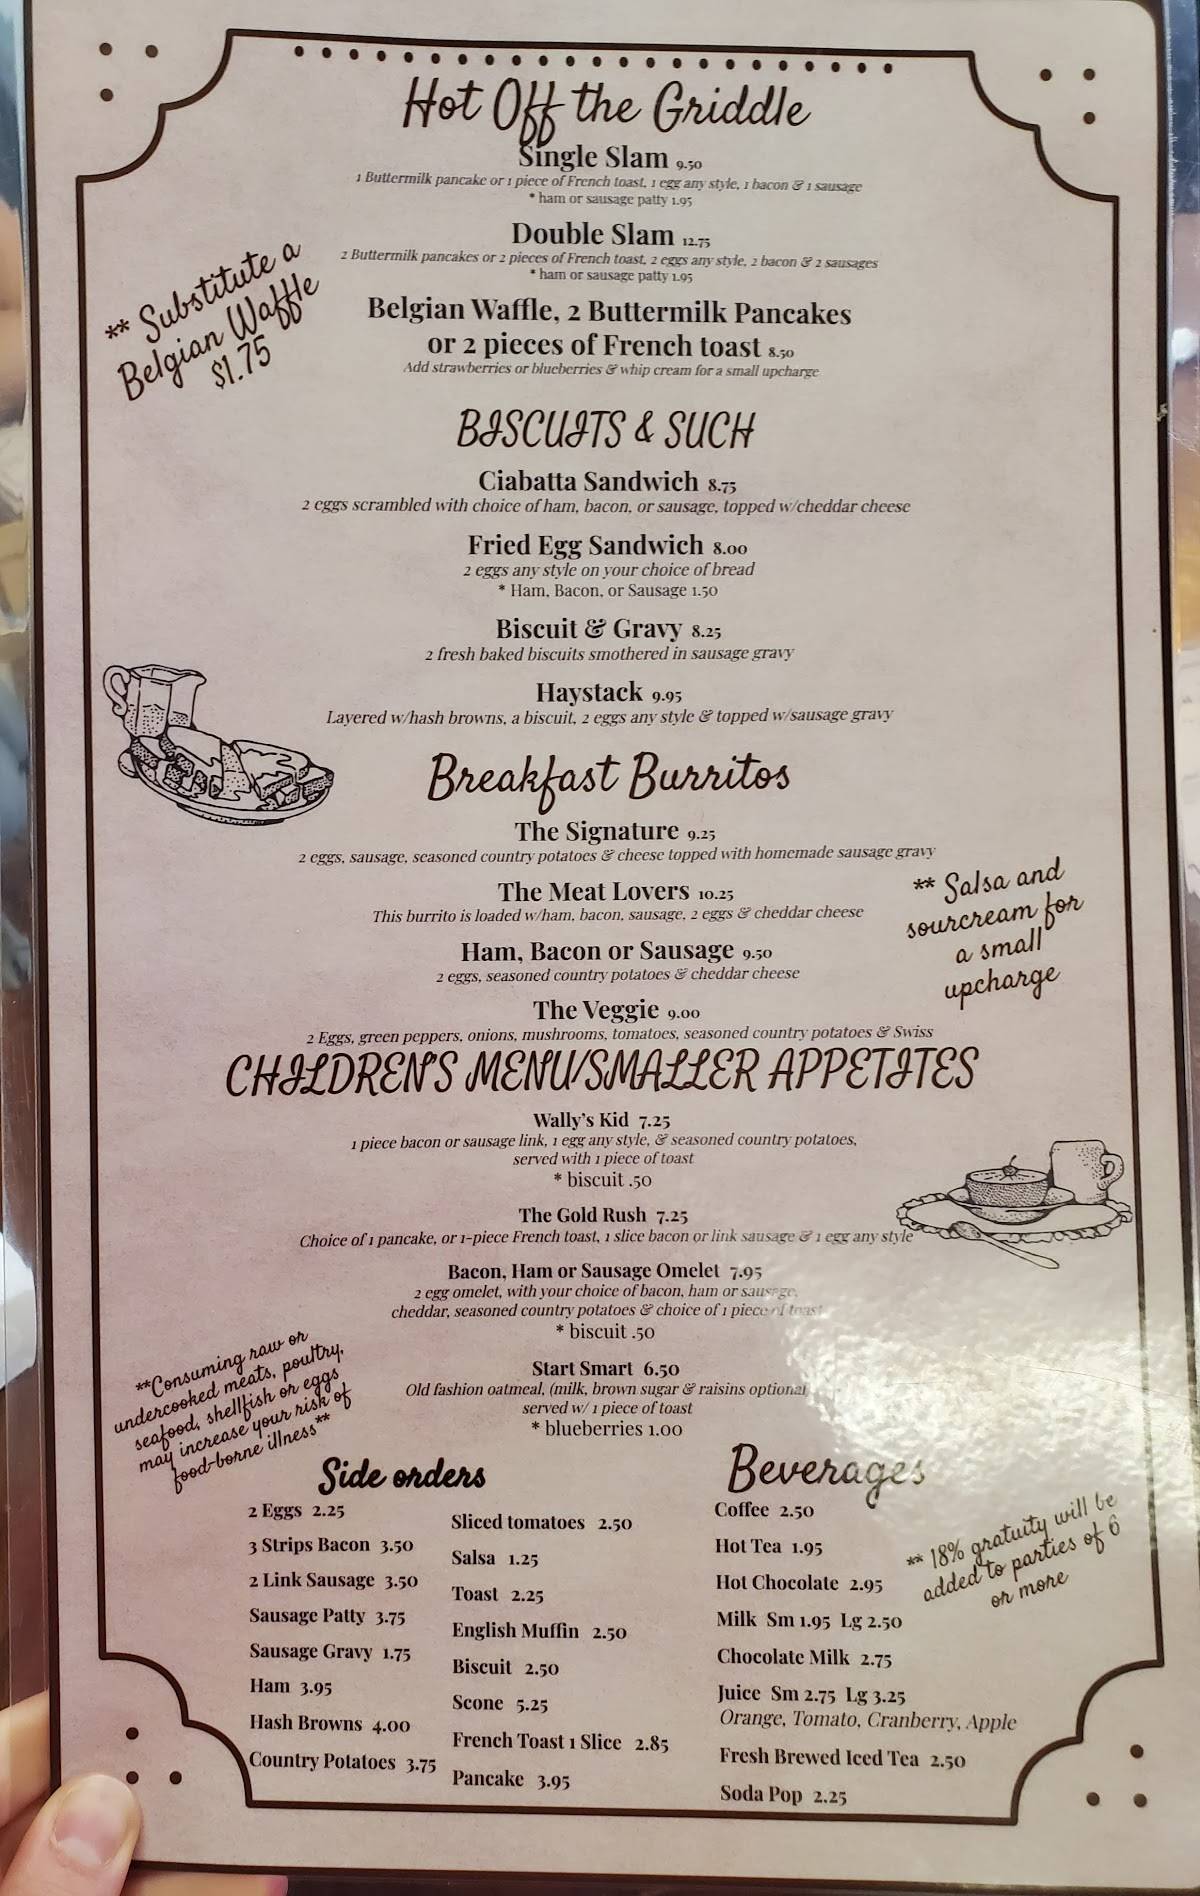 Hot Off the Griddle
Single Slam 9.50
1 Buttermilk pancake or 1 piece of French toast, 1 egg any style, 1 bacon & 1 sausage
* ham or sausage patty 1.95
Double Slam 12.75
2 Buttermilk pancakes or 2 pieces of French toast, 2 eggs any style, 2 bacon & 2 sausages
* ham or sausage patty 1.95
** Substitute a
Belgian Waffle
$1.75
Belgian Waffle, 2 Buttermilk Pancakes
or 2 pieces of French toast 8.50
Add strawberries or blueberries & whip cream for a small upcharge
BISCUITS & SUCH
Ciabatta Sandwich 8.75
2 eggs scrambled with choice of ham, bacon, or sausage, topped w/cheddar cheese
Fried Egg Sandwich 8.00
2 eggs any style on your choice of bread
* Ham, Bacon, or Sausage 1.50
Biscuit & Gravy 8.25
2 fresh baked biscuits smothered in sausage gravy
Haystack 9.95
Layered w/hash browns, a biscuit, 2 eggs any style & topped w/sausage gravy
Breakfast Burritos
The Signature 9.25
2 eggs, sausage, seasoned country potatoes & cheese topped with homemade sausage gravy
The Meat Lovers 10.25
This burrito is loaded w/ham, bacon, sausage, 2 eggs & cheddar cheese
Ham, Bacon or Sausage 9.50
2 eggs, seasoned country potatoes & cheddar cheese
The Veggie 9.00
2 Eggs, green peppers, onions, mushrooms, tomatoes, seasoned country potatoes & Swiss
** Salsa and
sourcream for
a small
upcharge
CHILDREN'S MENU/SMALLER APPETITES
Wally's Kid 7.25
1 piece bacon or sausage link, 1 egg any style, & seasoned country potatoes,
served with 1 piece of toast
* biscuit .50
The Gold Rush 7.25
Choice of 1 pancake, or 1-piece French toast, 1 slice bacon or link sausage & 1 egg any style
Bacon, Ham or Sausage Omelet 7.95
2 egg omelet, with your choice of bacon, ham or sausage,
cheddar, seasoned country potatoes & choice of 1 piece of toast
* biscuit .50
Start Smart 6.50
Old fashion oatmeal, (milk, brown sugar & raisins optional
served w/ 1 piece of toast
* blueberries 1.00
**Consuming raw or
undercooked meats, poultry,
seafood, shellfish or eggs
may increase your risk of
food-borne illness**
Side orders
2 Eggs 2.25
3 Strips Bacon 3.50
2 Link Sausage 3.50
Sausage Patty 3.75
Sausage Gravy 1.75
Ham 3.95
Hash Browns 4.00
Country Potatoes 3.75
Sliced tomatoes 2.50
Salsa 1.25
Toast 2.25
English Muffin 2.50
Biscuit 2.50
Scone 5.25
French Toast 1 Slice 2.85
Pancake 3.95
Beverages
Coffee 2.50
Hot Tea 1.95
Hot Chocolate 2.95
Milk Sm 1.95 Lg 2.50
Chocolate Milk 2.75
Juice Sm 2.75 Lg 3.25
Orange, Tomato, Cranberry, Apple
Fresh Brewed Iced Tea 2.50
Soda Pop 2.25
** 18% gratuity will be
added to parties of 6
or more